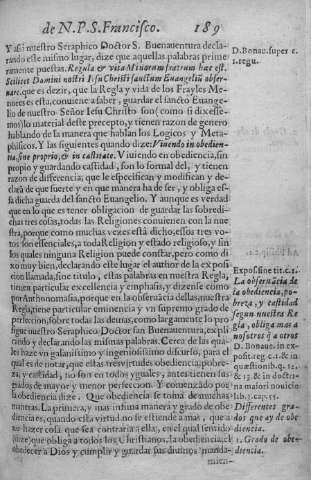 de N.P.S. Francisco. 189
Y assi nuestro Seraphico Doctor S. Buenauentura decla-
rando este mismo lugar, dize que aquellas palabras prime-
ramente puestas. Regula & vita Minorum fratrum hæc est.
Scilicet Domini nostri Iesu Christi sanctum Euangelium obser-
uare. que es dezir, que la Regla y vida de los Frayles Me-
nores es esta, conuiene a saber, guardar el sancto Euange-
lio de nuestro Señor Iesu Christo son (como si dixesse-
mos) lo material deste precepto, y tienen razon de genero
hablando de la manera que hablan los Logicos y Meta-
phisicos. Y las siguientes quando dize: Viuendo in obedien-
tia, sine proprio, & in castitate. Viuiendo en obediencia, sin
proprio y guardando castidad, son lo formal del, y tienen
razon de differencia; que le especifican y modifican y de-
clarã de que suerte y en que manera ha de ser, y obliga es-
sa dicha guarda del sancto Euangelio. Y aunque es verdad
que en lo que es tener obligacion de guardar las sobredi-
chas tres cosas, todas las Religiones conuienen con la nue-
stra, porque como muchas vezes està dicho, essos tres vo-
tos son essenciales, a toda Religion y estado religioso, y sin
los quales ninguna Religion puede constar, pero como di-
xo muy bien, declarando este lugar el author de la exposi-
cion llamada, sine titulo, estas palabras en nuestra Regla,
tienen particular excellencia y emphasis, y dizense como
por Anthonomasia, porque en la obseruãcia dellas, nuestra
Regla, tiene particular eminencia y vn supremo grado de
perfeccion, sobre todas las demas, como largamente lo pro-
sigue nuestro Seraphico Doctor san Buenauentura, expli
cando y declarando las mismas palabras. Cerca de las qua-
les haze vn galanissimo y ingeniosissimo discurso, para el
qual es de notar, que estas tres virtudes obediencia, pobre-
za, y castidad, no son en todos yguales, antes tienen sus
grados de mayor y menor perfeccion. Y començando por
la obediencia dize. Que obediencia se toma de muchas
maneras. La primera, y mas infima manera y grado de obe-
diencia es, quando esta virtud no se estiende a mas, que a
no hazer cosa que sea contraria a ella, en el qual sentido
dize que obliga a todos los Christianos, la obediencia, el
obedecer a Dios y cumplir y guardar sus diuinos manda-
mien-
D. Bonau. super c.
1. regu.
Expos. sine tit. c. 1.
La obseruãcia de
la obediencia, po-
breza, y castidad
segun nuestra Re
gla, obliga mas a
nosotros q̃ a otros
D. Bonaue. in ex-
posit. reg. c. 1. & in
quæstionib. q. 12.
& 13. & in doctri-
na maiori nouicio
lib. 3. cap. 55.
Differentes gra-
dos que ay de obe
diencia.
1. Grado de obe-
diencia.